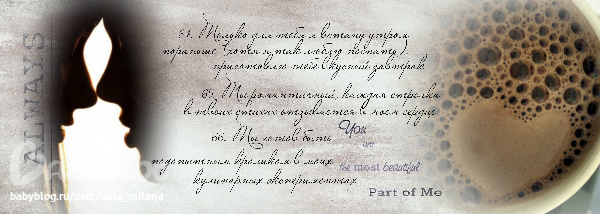 ALWAYS
64. Только для тебя я встану утром
пораньше (хотя я так люблю поспать)
приготовлю тебе вкусный завтрак
65. Ты романтичный, каждая строчка
в твоих стихах отзывается в моем сердце
66. Ты готов быть
You
are
подопытным кроликом в моих
the most beautiful
кулинарных экспериментах
Part of Me
babyblog.ru/user/lana_milana